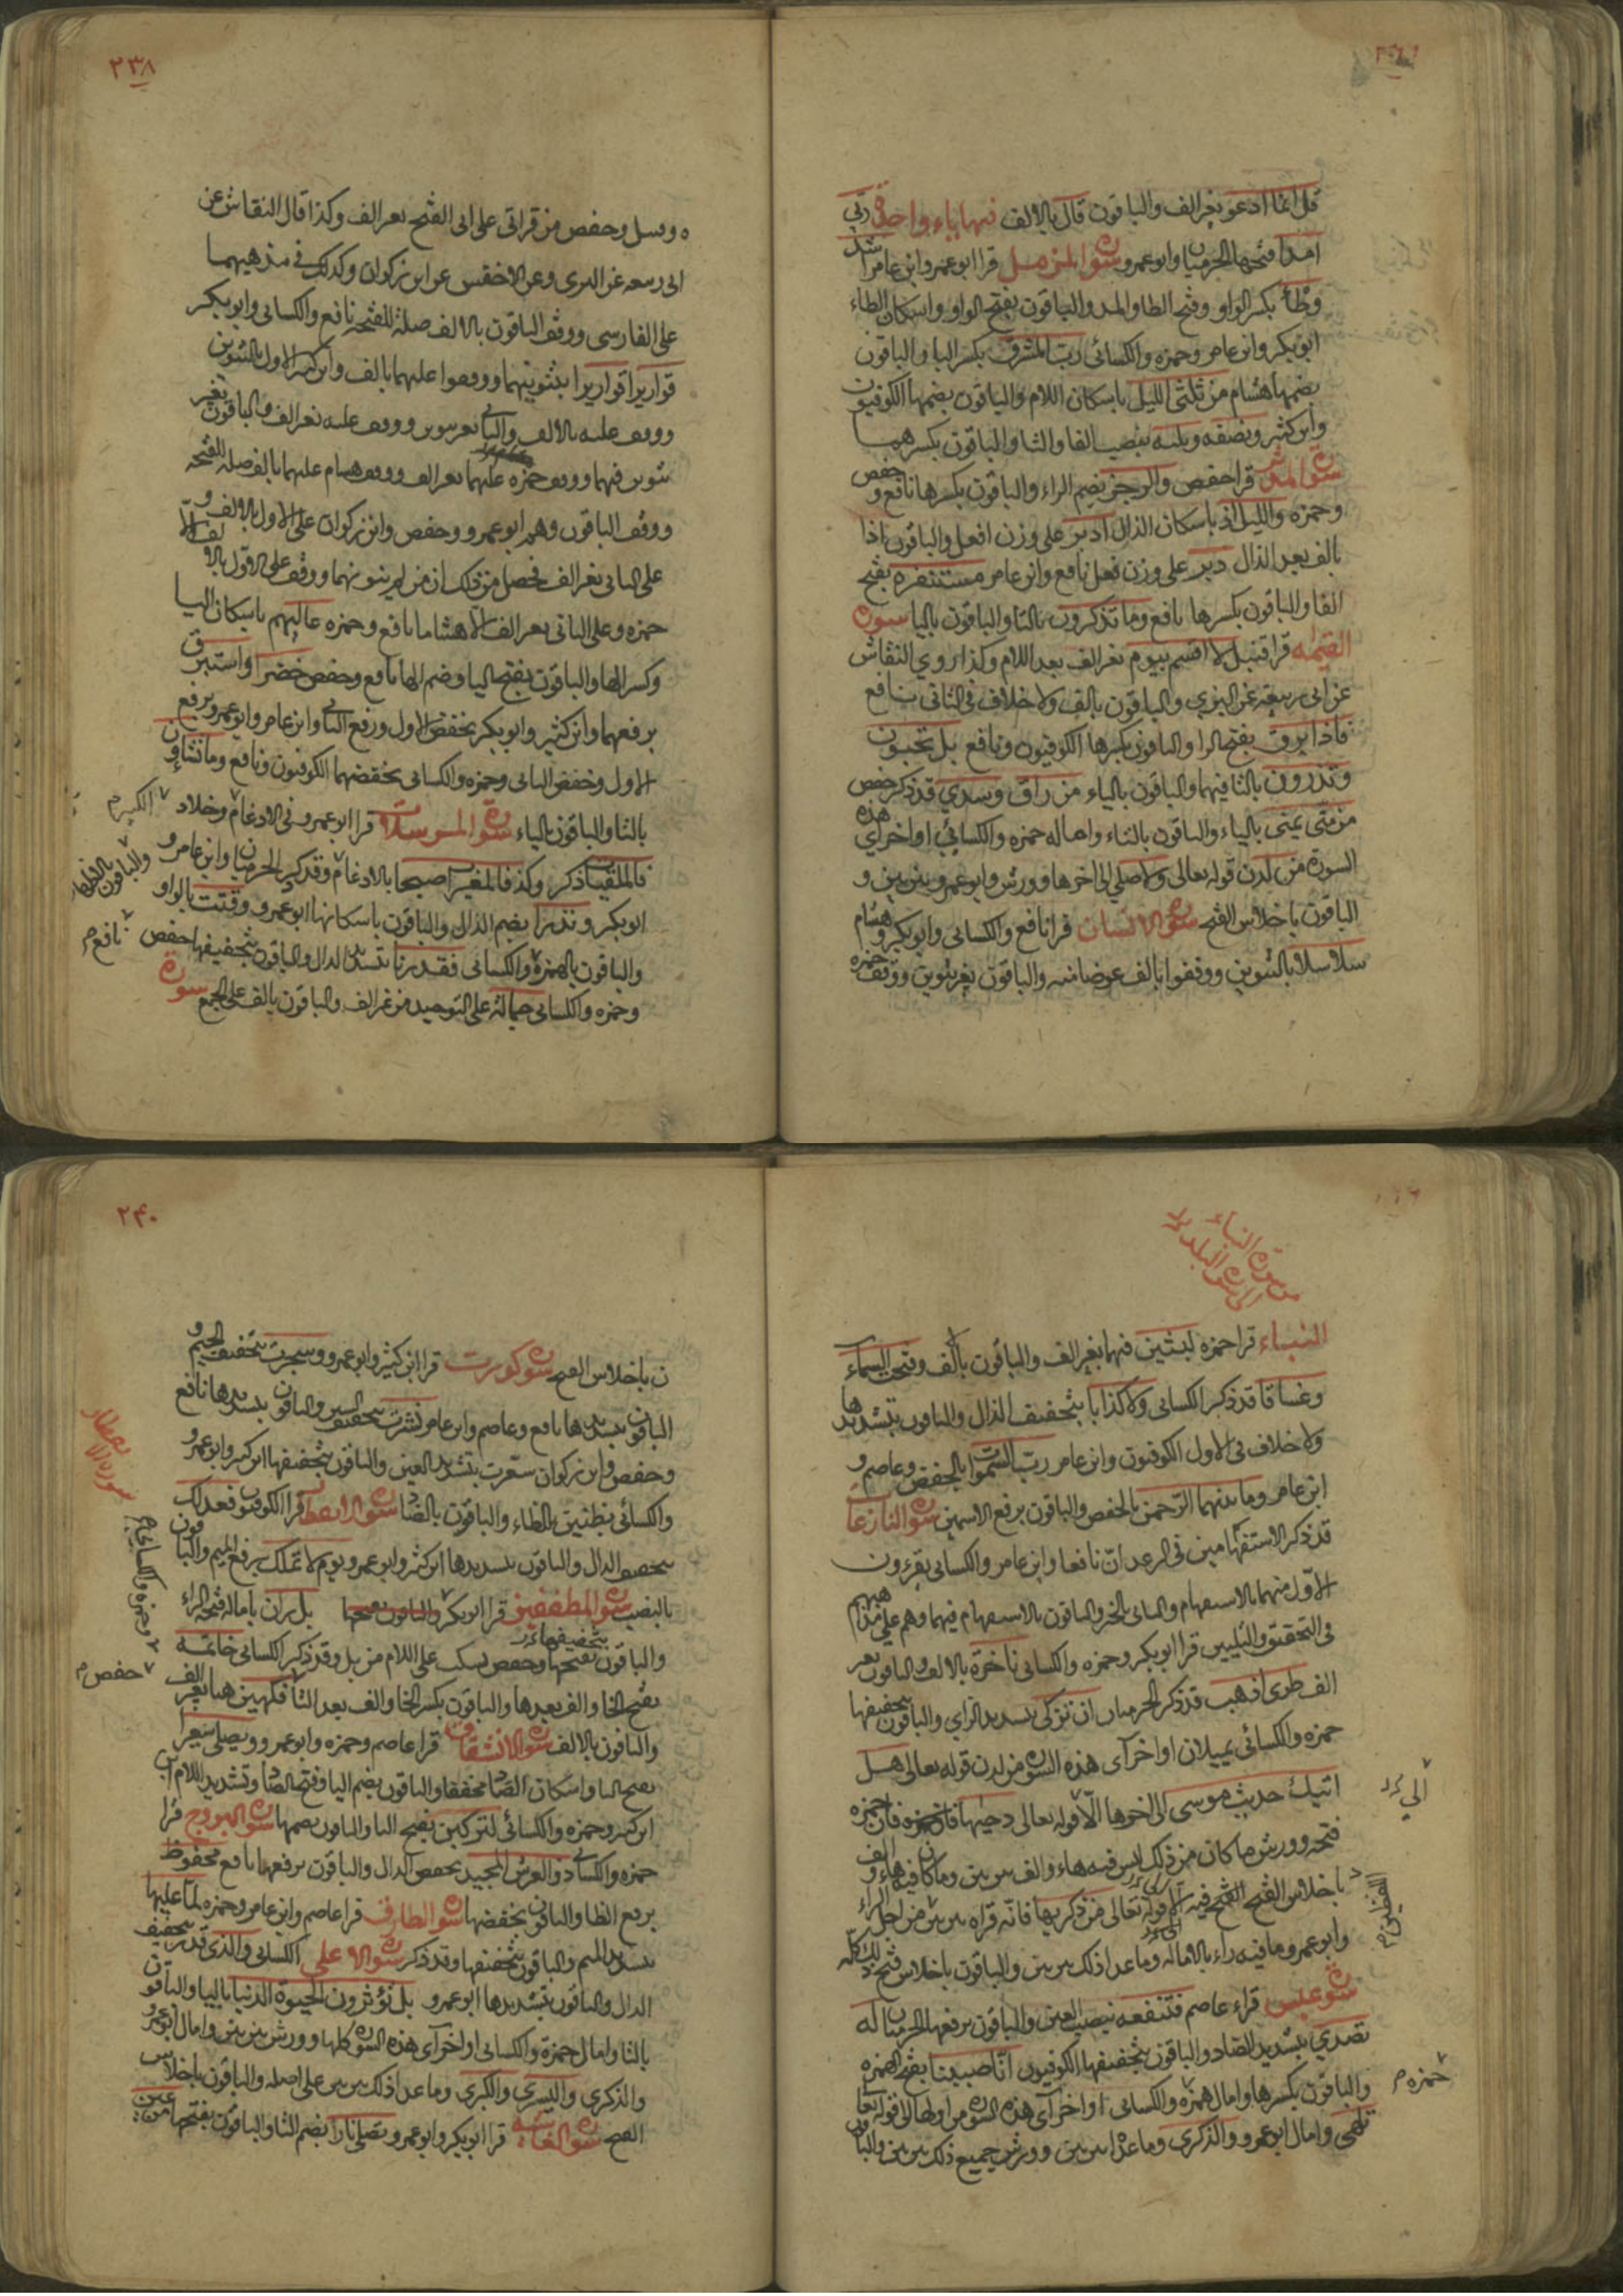 قل انما ادعو بغير الف والباقون قال بالالف فيها ياء واحدة ربي
امدا فتحها الحرميان وابو عمرو سورة المزمل قرا ابو عمرو وابن عامر اشد
وطأ بكسر الواو وفتح الطا والمد والباقون بفتح الواو واسكان الطاء
ابو بكر وابن عامر وحمزه والكسائى رب المشرق بكسر البا والباقون
بضمها هشام من ثلثى الليل باسكان اللام والباقون بضمها الكوفيون
وابن كثير ونصفه وثلثه بنصب الفا والثا والباقون بكسرهما
سورة المدثر قرا حفص والرجز بضم الراء والباقون بكسرها نافع و حفص
وحمزه والليل اذ باسكان الذال ادبر على وزن افعل والباقون اذا
بالف بعد الذال دبر على وزن فعل نافع وابن عامر مستنفره بفتح
الفا والباقون بكسرها نافع وما تذكرون بالتا والباقون باليا سورة
القيمة قرا قنبل لا اقسم بيوم بغير الف بعد اللام وكذا روى النقاش
عن ابى ربيعة عن البزي والباقون بالف ولا خلاف فى الثانى نافع
فاذا برق بفتح الرا والباقون بكسرها الكوفيون ونافع بل تحبون
وتذرون بالتا فيهما والباقون بالياء من راق وسدي قد ذكر حفص
من منى يمنى بالياء والباقون بالتاء واماله حمزه والكسائي اواخر اي هذه
السورة من لدن قوله تعالى ولا صلى الى اخرها وورش وابو عمرو بين بين و
الباقون باخلاص الفتح سورة الانسان قرا نافع والكسائى وابو بكر وهشام
سلاسلا بالتنوين ووقفوا بالف عوضا منه والباقون بغير تنوين ووقف حمزه
٢٣٨
وقنبل وحفص من قراتى على ابى الفتح بغير الف وكذا قال النقاش عن
ابى ربيعه عن البزى وعن الاخفش عن ابن ذكوان وكذلك فى مذهبهما
على الفارسى ووقف الباقون بالالف صلة للفتحه نافع والكسائى وابو بكر
قواريرا قواريرا بتنوينهما ووقفوا عليهما بالف وابن كثير الاول بالتنوين
ووقف عليه بالالف والثانى بغير تنوين ووقف عليه بغير الف والباقون بغير
تنوين فيهما ووقف حمزه عليهما بغير الف ووقف هشام عليهما بالف صلة للفتحه
ووقف الباقون وهم ابو عمرو وحفص وابن ذكوان على الاول بالالف و
على الثانى بغير الف فحصل من ذلك ان من لم ينونهما ووقف على الاول بالالف الا
حمزه وعلى الثانى بغير الف الا هشاما نافع وحمزه عاليهم باسكان اليا
وكسر الها والباقون بفتح اليا وضم الها نافع وحفص خضر واستبرق
برفعهما وابن كثير وابو بكر بخفض الاول ورفع الثانى وابن عامر وابو عمرو برفع
الاول وخفض الثانى وحمزه والكسائى بخفضهما الكوفيون ونافع وما تشاؤن
بالتا والباقون بالياء سورة المرسلات قرا ابو عمرو فى الادغام وخلاد
الكبير م
فالملقيات ذكر وكذا فالمغيرات صبحا بالادغام وقد ذكر الحرميان وابن عامر و
والباقون بالاظهار
ابو بكر ونذرا بضم الذال والباقون باسكانها ابو عمرو وقتت بالواو
والباقون بالهمزة والكسائى فقدرنا بتشديد الدال والباقون بتخفيفها حفص
نافع م
وحمزه والكسائى جمالة على التوحيد من غير الف والباقون بالف على الجمع سورة
من سورة النباء
الى سورة البلد
النباء قرا حمزه لبثين فيها بغير الف والباقون بالف وفتحت السماء
وغساقا قد ذكر الكسائى ولا كذابا بتخفيف الذال والباقون بتشديدها
ولا خلاف فى الاول الكوفيون وابن عامر رب السموات بالخفض وعاصم و
ابن عامر وما بينهما الرحمن بالخفض والباقون برفع الاسمين سورة النازعات
قد ذكر الاستفهامين فى الرعد ان نافعا وابن عامر والكسائى يقرؤن
الاول منهما بالاستفهام والثانى بالخبر والباقون بالاستفهام فيهما وهم على مذاهبهم
فى التحقيق والتليين قرا ابو بكر وحمزه والكسائى ناخرة بالالف والباقون بغير
الف طوى اذهب قد ذكر الحرميان ان تزكى بتشديد الزاي والباقون بتخفيفها
حمزه والكسائى يميلان اواخر آى هذه السورة من لدن قوله تعالى هل
اتيك حديث موسى الى اخرها الا قوله تعالى دحيها فان حمزه
الى
فتحه وورش ما كان من ذلك ليس فيه هاء والف بين بين وما كان فيه هاء و الف
باخلاص الفتح فيه الا قوله تعالى من ذكريها فانه قراه بين بين من اجل الراء
وابو عمرو وما فيه راء بالاماله وما عدا ذلك بين بين والباقون باخلاص فتح ذلك كله
سورة عبس قراء عاصم فتنفعه بنصب العين والباقون برفعها الحرميان له
تصدي بتشديد الصاد والباقون بتخفيفها الكوفيون انا صببنا بفتح الهمزه
والباقون بكسرها وامال حمزه والكسائى اواخر آى هذه السورة من اولها الى قوله تعا
حمزه م
تلهى وامال ابو عمرو والذكرى وما عداه بين بين وورش جميع ذلك بين بين والباقو
٢٤٠
ن باخلاص الفتح سورة كورت قرا ابن كثير وابو عمرو وسجرت بتخفيف الجيم و
الباقون بتشديدها نافع وعاصم وابن عامر نشرت بتخفيف الشين والباقون بتشديدها نافع
وحفص وابن ذكوان سعرت بتشديد العين والباقون بتخفيفها ابن كثير وابو عمرو
والكسائى بظنين بالظاء والباقون بالضاد سورة الانفطار قرا الكوفيون فعدلك
سورة الانفطار
بتخفيف الدال والباقون بتشديدها ابن كثير وابو عمرو يوم لا تملك برفع الميم والباقون
بالنصب سورة المطففين قرا ابو بكر وحمزه والكسائى بل ران بامالة فتحة الراء
والباقون بفتحها وحفص يسكت على اللام من بل وقد ذكر الكسائى خاتمه
بفتح الخا والف بعدها والباقون بكسر الخا والف بعد التا فكهين هنا بغير الف
حفص م
والباقون بالالف سورة الانشقاق قرا عاصم وحمزه وابو عمرو ويصلى سعيرا
بفتح اليا واسكان الصاد مخففا والباقون بضم اليا وفتح الصاد وتشديد اللام
ابن كثير وحمزه والكسائى لتركبن بفتح البا والباقون بضمها سورة البروج قرا
حمزه والكسائى ذو العرش المجيد بخفض الدال والباقون برفعها نافع محفوظ
برفع الظا والباقون بخفضها سورة الطارق قرا عاصم وابن عامر وحمزه لما عليها
بتشديد الميم والباقون بتخفيفها وقد ذكر سورة الاعلى الكسائى والذى قدر بتخفيف
الدال والباقون بتشديدها ابو عمرو بل تؤثرون الحيوة الدنيا باليا والباقون
بالتا وامال حمزة والكسائى اواخر آى هذه السورة كلها وورش بين بين وامال ابو عمرو
والذكرى واليسرى والكبرى وما عدا ذلك بين بين على اصله والباقون باخلاص
الفتح سورة الغاشيه قرا ابو بكر وابو عمرو تصلى نارا بضم التا والباقون بفتحها من عين